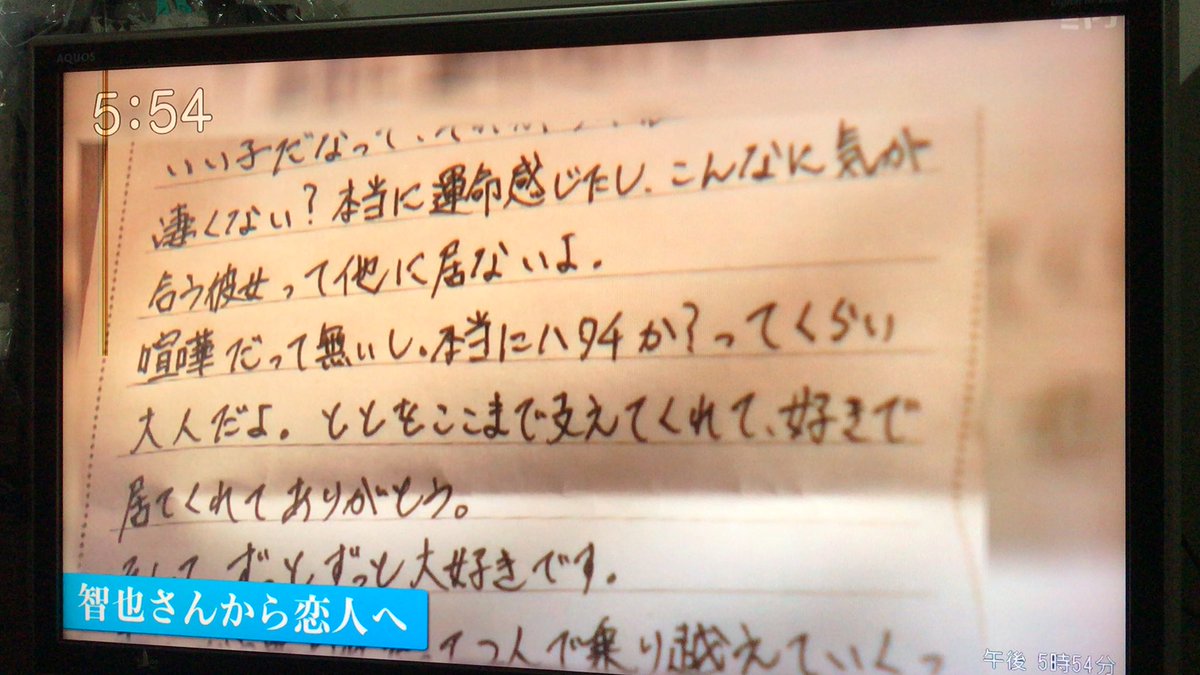 AQUOS
5:54
いい子だなって
凄くない？本当に運命感じたし、こんなに気が
合う彼女って他に居ないよ。
喧嘩だって無いし、本当にハタチか？ってくらい
大人だよ。ととをここまで支えてくれて、好きで
居てくれてありがとう。
ずっとずっと大好きです。
智也さんから恋人へ
つ人で乗り越えていくっ
午後 5時54分